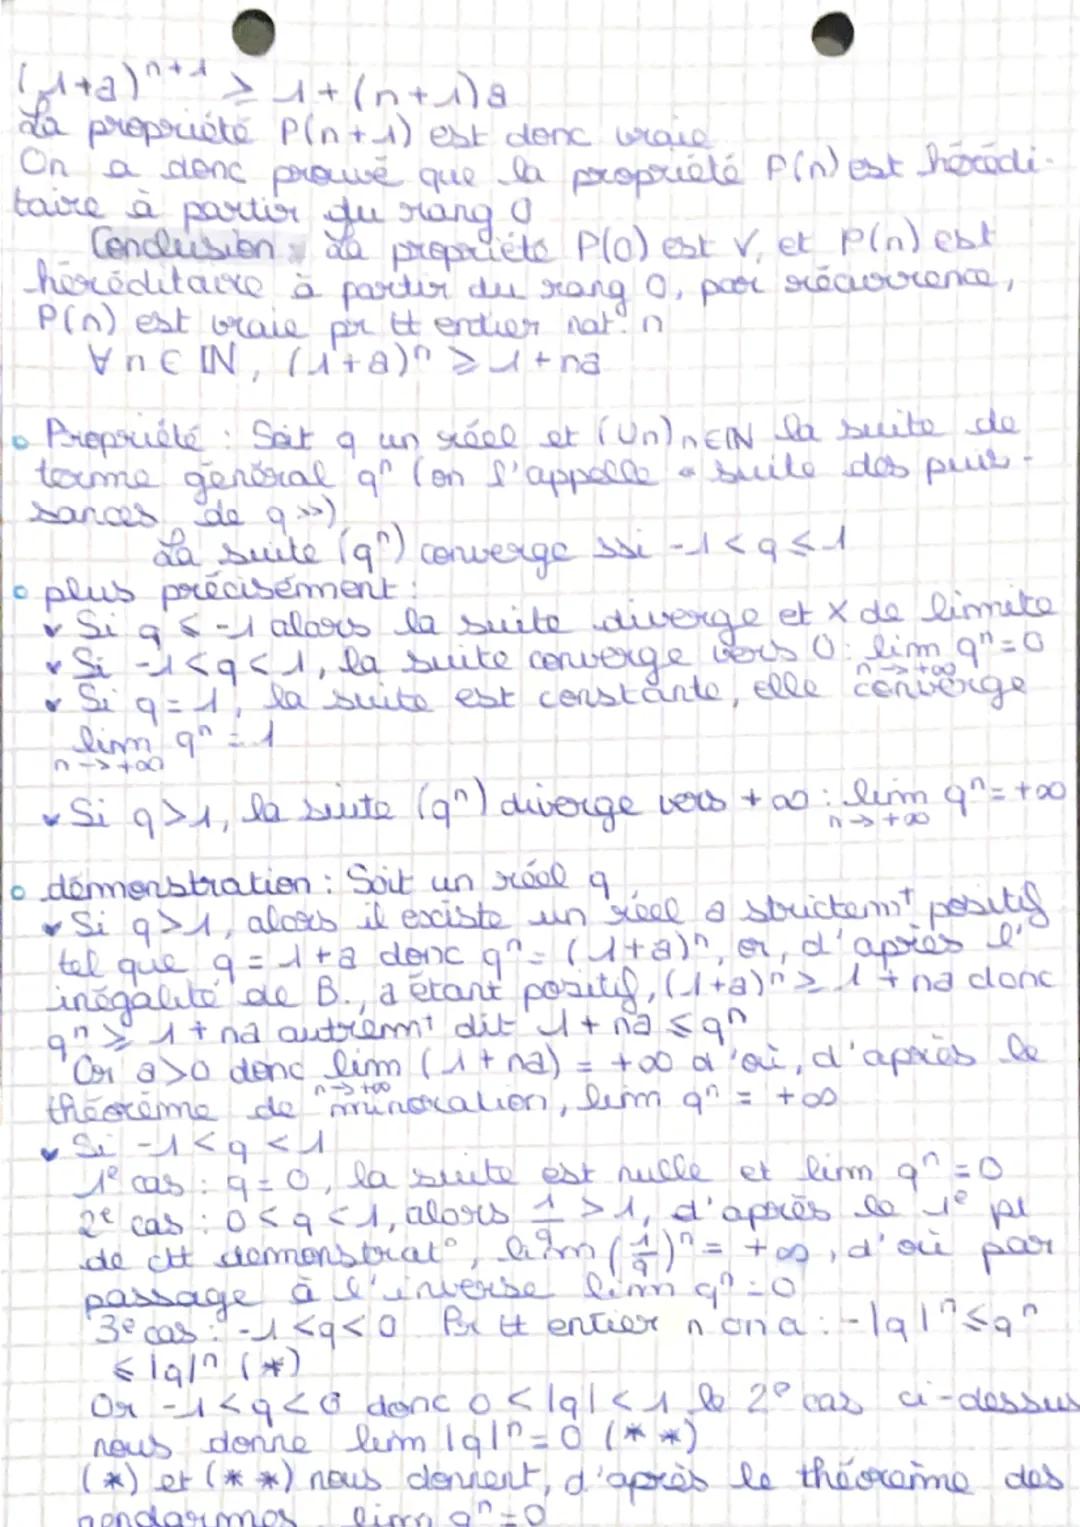 (1+a)ⁿ⁺¹ ≥ 1+(n+1)a
La propriété P(n+1) est donc vraie
On a donc prouvé que la propriété P(n) est hérédi-
taire à partir du rang 0
Conclusion : La propriété P(0) est V, et P(n) est
héréditaire à partir du rang 0, par récurrence,
P(n) est vraie pr tt entier nat° n
∀ n ∈ ℕ, (1+a)ⁿ ≥ 1+na
Propriété : Soit q un réel et (Un)n∈ℕ la suite de
terme général qⁿ (on l'appelle « suite des puis-
sances de q »)
La suite (qⁿ) converge ssi -1<q≤1
plus précisément :
Si q ≤ -1 alors la suite diverge et X de limite
Si -1<q<1, la suite converge vers 0 : lim qⁿ=0
n→+∞
Si q=1, la suite est constante, elle converge
lim qⁿ = 1
n→+∞
Si q>1, la suite (qⁿ) diverge vers +∞ : lim qⁿ=+∞
n→+∞
démonstration : Soit un réel q
Si q>1, alors il existe un réel a strictemᵗ positif
tel que q=1+a donc qⁿ=(1+a)ⁿ, or, d'après l'
inégalité de B., a étant positif, (1+a)ⁿ≥ 1+na donc
qⁿ ≥ 1+na autremᵗ dit 1+na ≤qⁿ
Or a>0 donc lim (1+na) = +∞ d'où, d'après le
n→+∞
théorème de minoration, lim qⁿ = +∞
Si -1<q<1
1ᵉ cas : q=0, la suite est nulle et lim qⁿ=0
2ᵉ cas : 0<q<1, alors 1/q >1, d'après le 1ᵉ pt
de ctt démonstrat°, lim (1/q)ⁿ = +∞, d'où par
passage à l'inverse lim qⁿ=0
3ᵉ cas : -1<q<0 Pr tt entier n on a : -|q|ⁿ≤qⁿ
≤|q|ⁿ (*)
Or -1<q<0 donc 0<|q|<1 le 2ᵉ cas ci-dessus
nous donne lim |q|ⁿ=0 (**)
(*) et (**) nous donnent, d'après le théorème des
gendarmes lim qⁿ=0